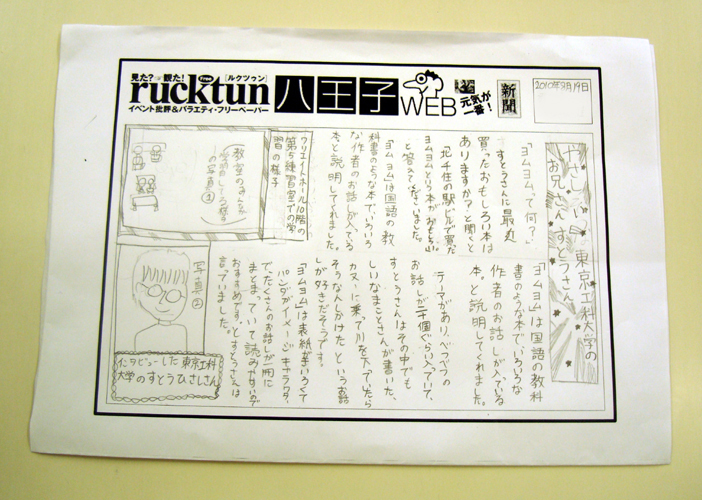 見た?観た!
Free
rucktun
[ルクツゥン]
イベント批評&バラエティ・フリーペーパー
八王子
WEB
元気が
一番!
新聞
2010年9月19日
東京工科大学の
お兄さん すとうさん
「ヨムヨムって何?」
すとうさんに最近
買ったおもしろい本は
ありますか?と聞くと
「北千住の駅ビルで買った
ヨムヨムという本がおもしろい」
と答えてくださいました。
「ヨムヨムは国語の教
科書のような本で、いろいろ
な作者のお話しが入っている
本」と説明してくれました。
クリエイトホール10階の
第5練習室での学
習の様子
教室のみんなが
学習してる様子
の写真①
「ヨムヨム」は国語の教科
書のような本で、いろいろな
作者のお話しが入っている
本。と説明してくれました。
テーマがあり、べつべつの
お話しが二十個ぐらい入っていて、
すとうさんはその中でも
しいなまことさんが書いた、
カヌーに乗って川を下っていたら
そうなんしかけた というお話
しが好きだそうです。
「ヨムヨム」は表紙が黄いろくて
パンダがイメージキャラクター、
でたくさんのお話しが一冊に
まとまっていて読みやすいので
おすすめです。とすとうさんは
言っていました。
写真②
インタビューした東京工科
大学のすとうひさしさん